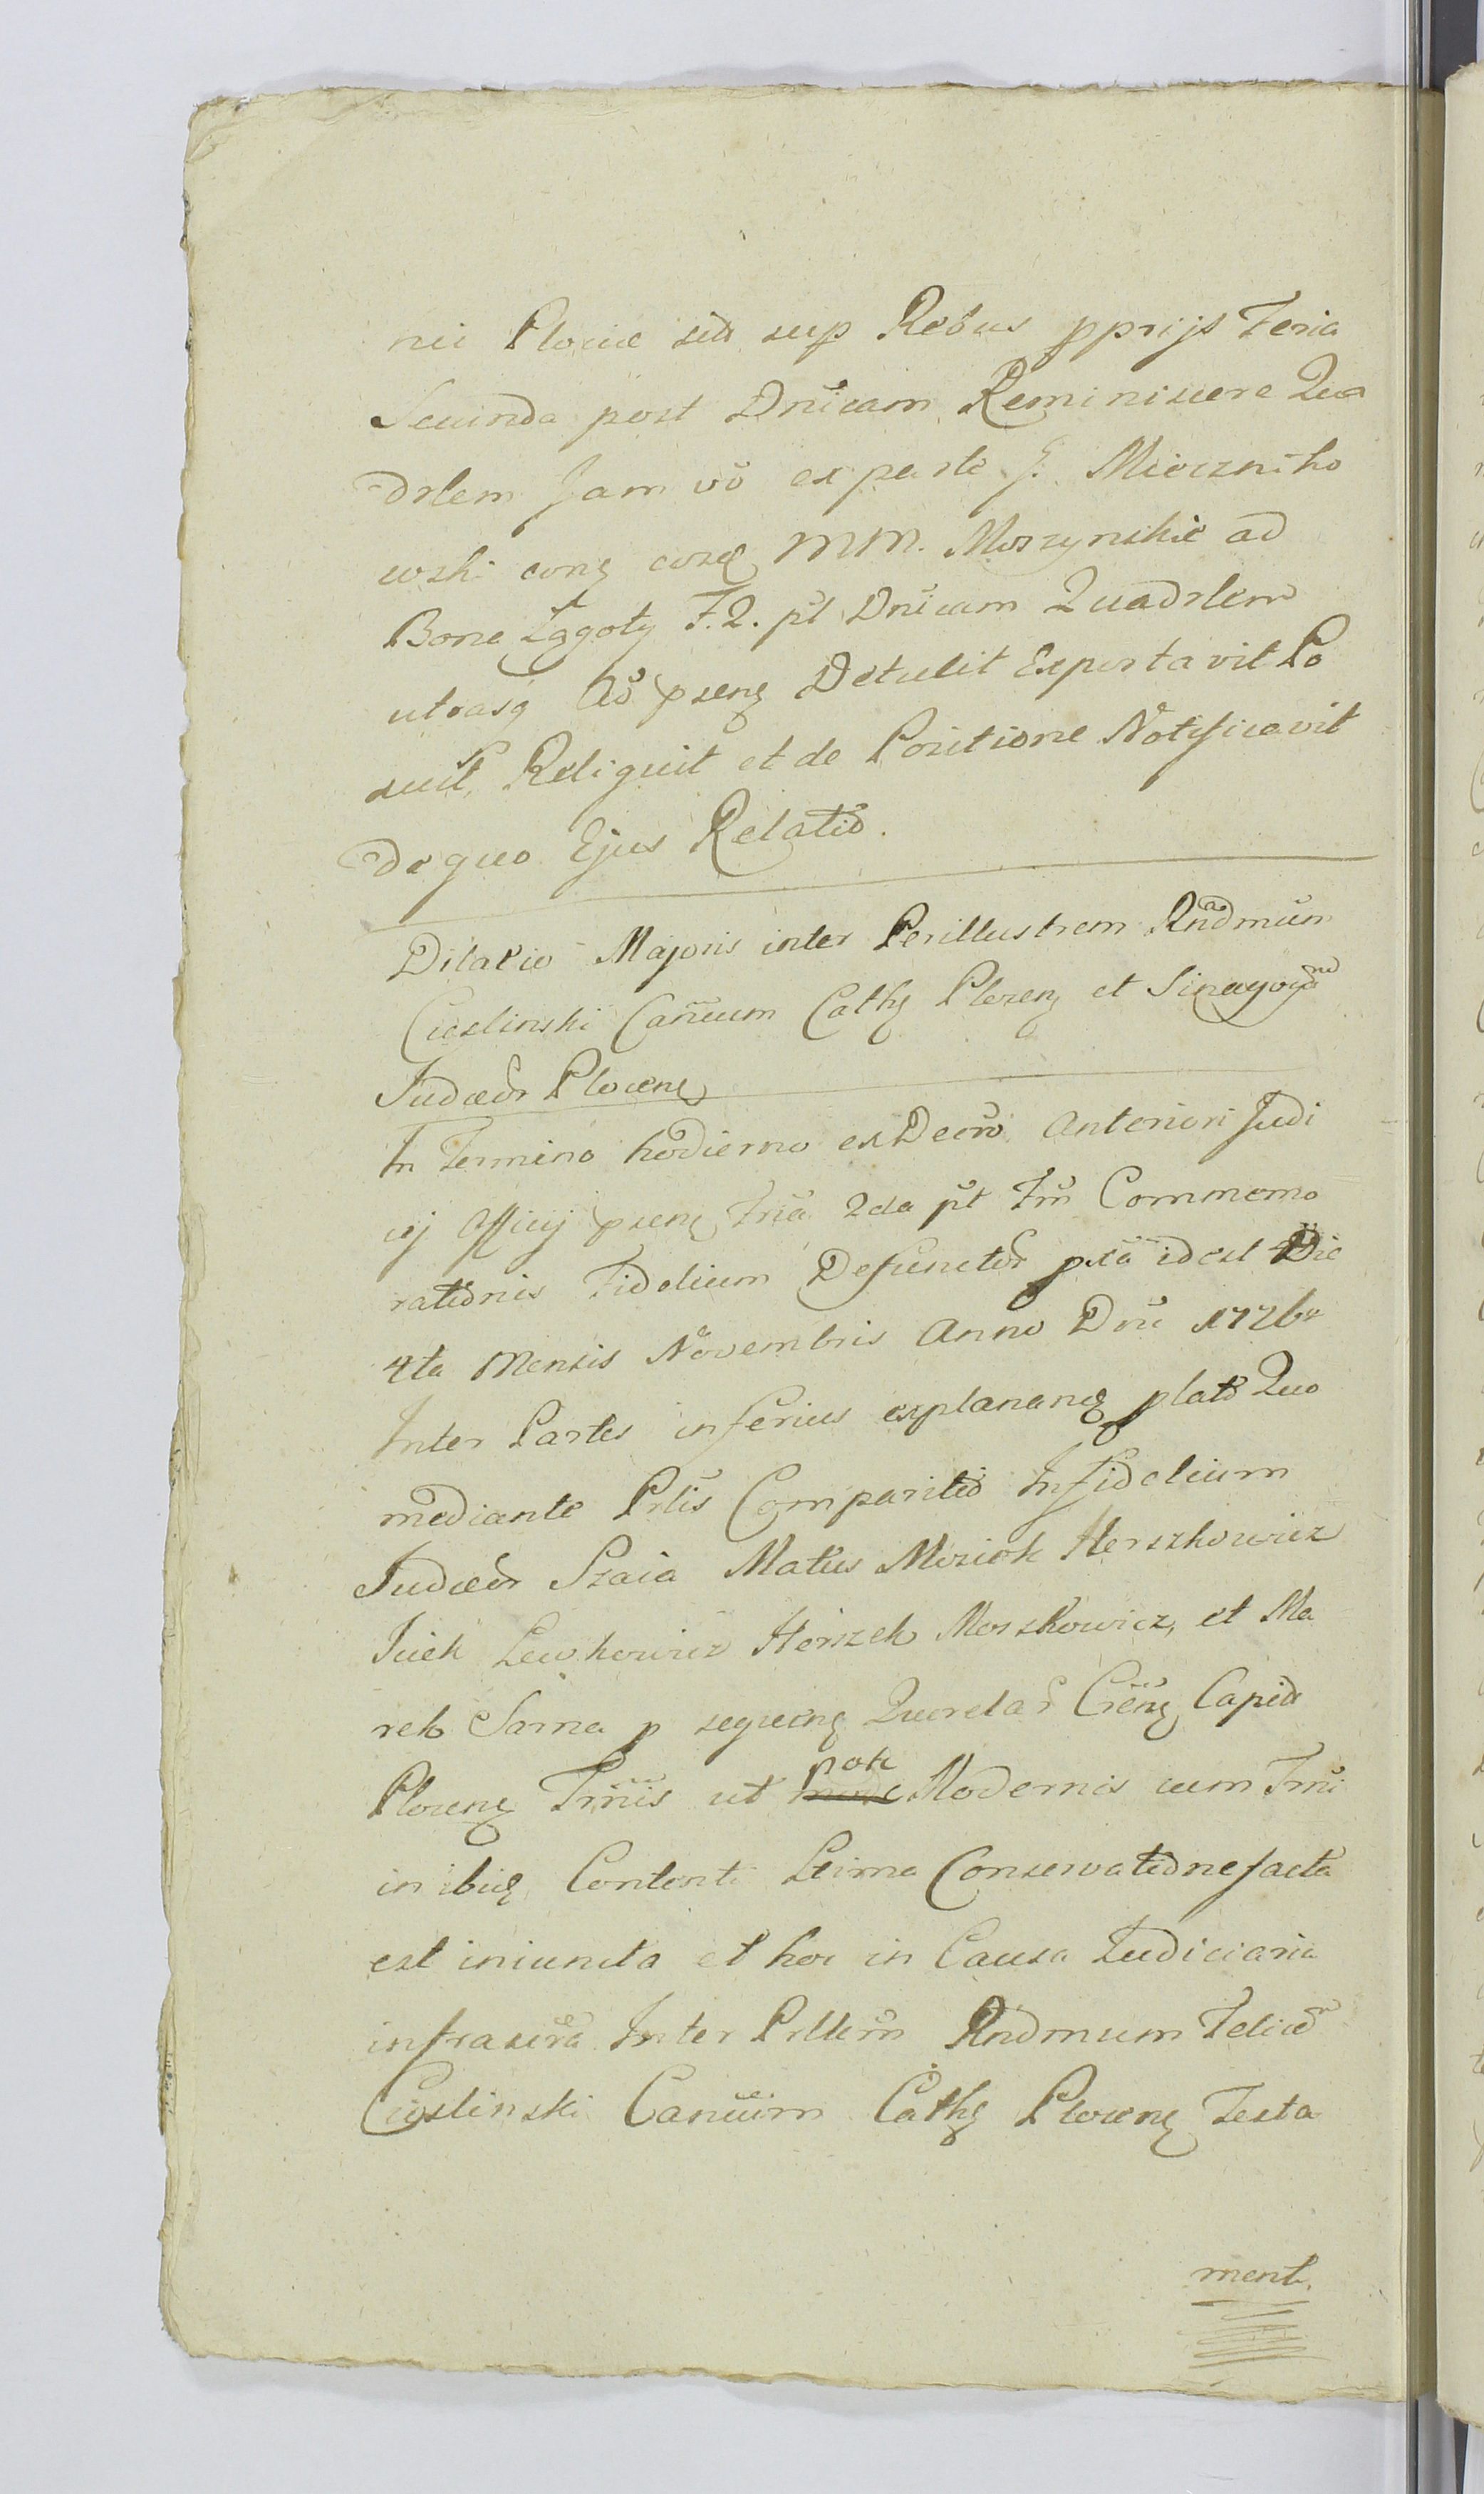 nii Plociæ sità sup Rebus pprijs Feria
Secunda post Dnicam Reminiscere Qua
drlem Jam vo ex parte G. Mieczniko
wski conq eosdq MM. Moszynskie ad
Bona Łęgoty F.2. pt Dnicam Quadrlem
utrasq Ad psenq Detulit Exportavit Po
suit, Reliquit et de Positione Notificavit
de quo Ejus Relatio.
Dilatio Majoris inter Perillustrem Rndmum
Cieslinski Cancum Cathq Plocenq et Sinagogam
Judæor Plocenq
In Termino hodierno ex Decro Anteriori Judi
cij Officij psenq Fria 2da pt Ftm Commemo
rationis Fidelium Defunctor pxa idest Die
4ta Mensis Novembris Anno Dni 1726to
Inter Partes inferius explananq plato Quo
mediante Prlis Comparitio Infidelium
Judæor Szaia Matus Moziek Herszkowicz
Juek Lewkowicz Herszek Moszkowicz, et Ma
rek Sarna p sequenq Querelas Crenq Capita
Plocenq Trmis ut pote Modernis cum Trmi
in ibiq Contenti Leima Conservatione facta
est iniuncta et hoc in Causa Judiciaria
infrascra Inter Prllem Rndmum Felicem
Cieslinski Cancum Cathq Plocenq Testa
ment.